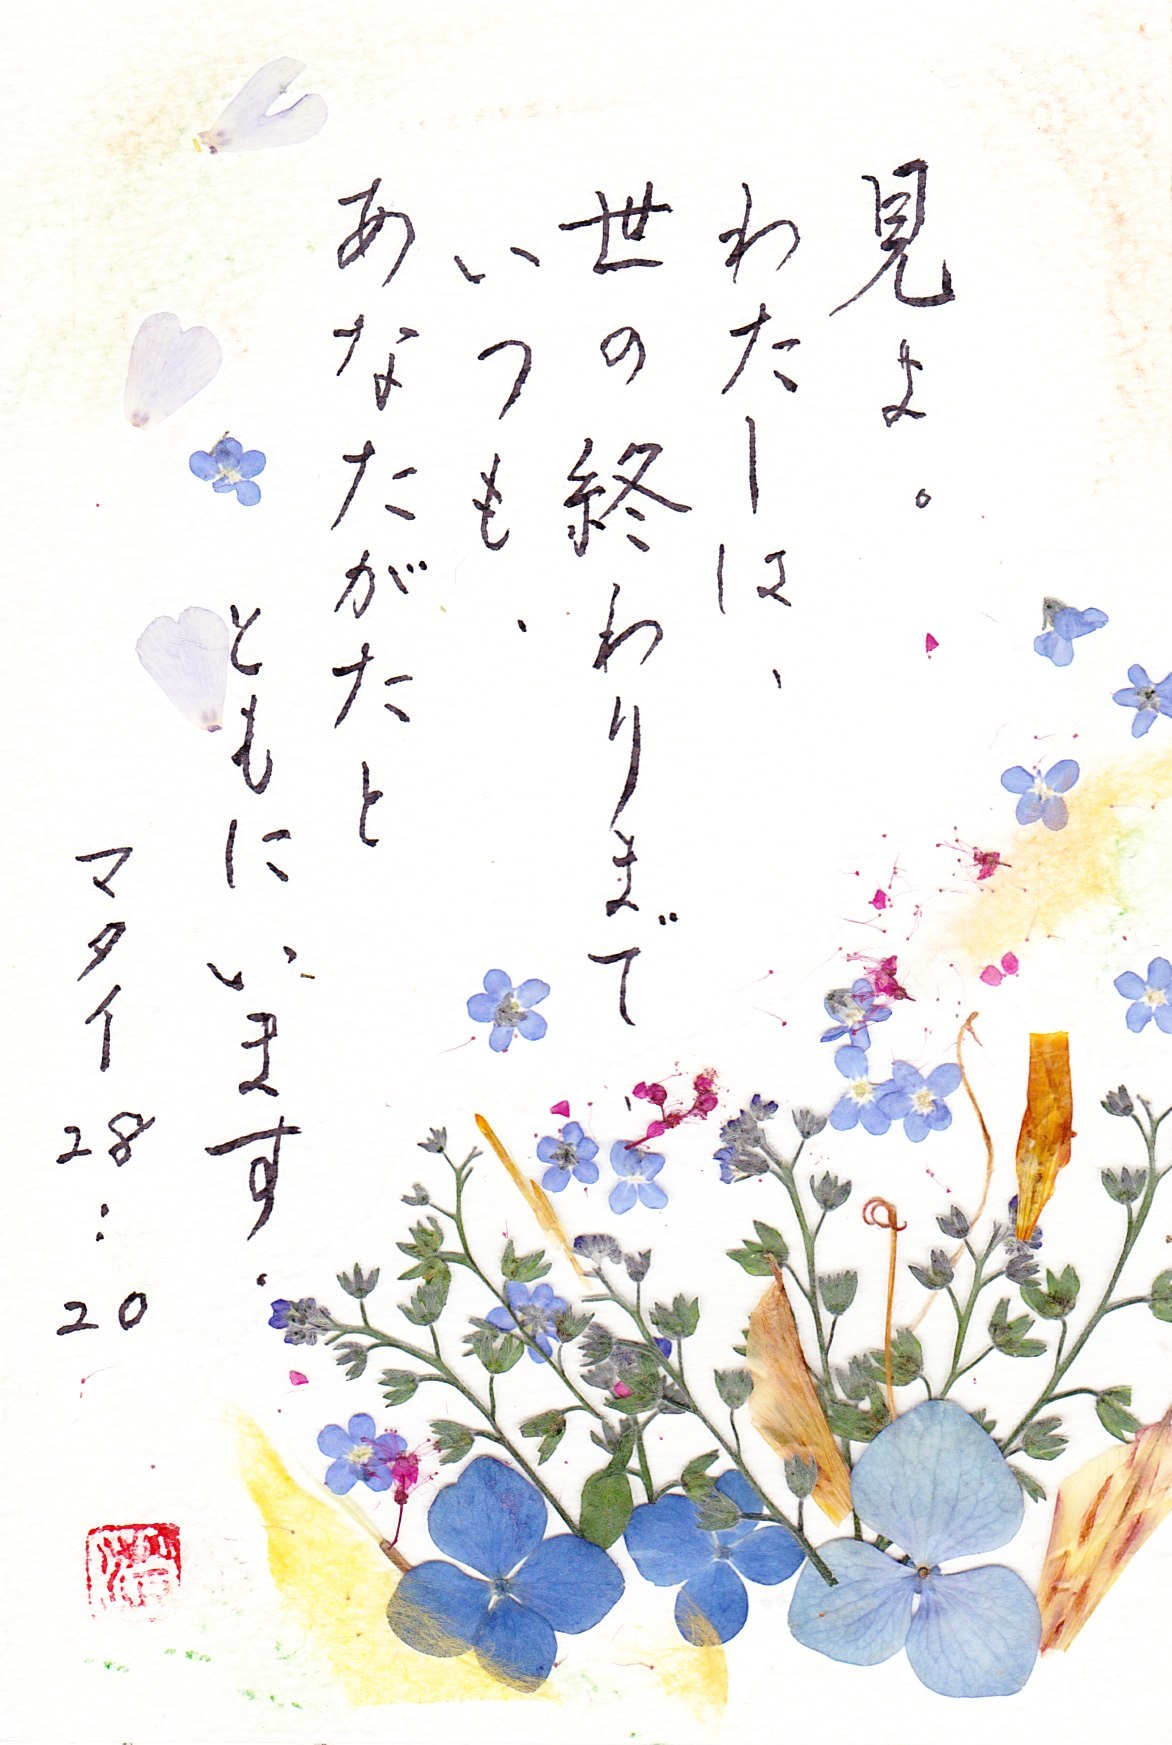 見よ。
わたしは、
世の終わりまで
いつも、
あなたがたと
ともにいます。
マタイ28:20